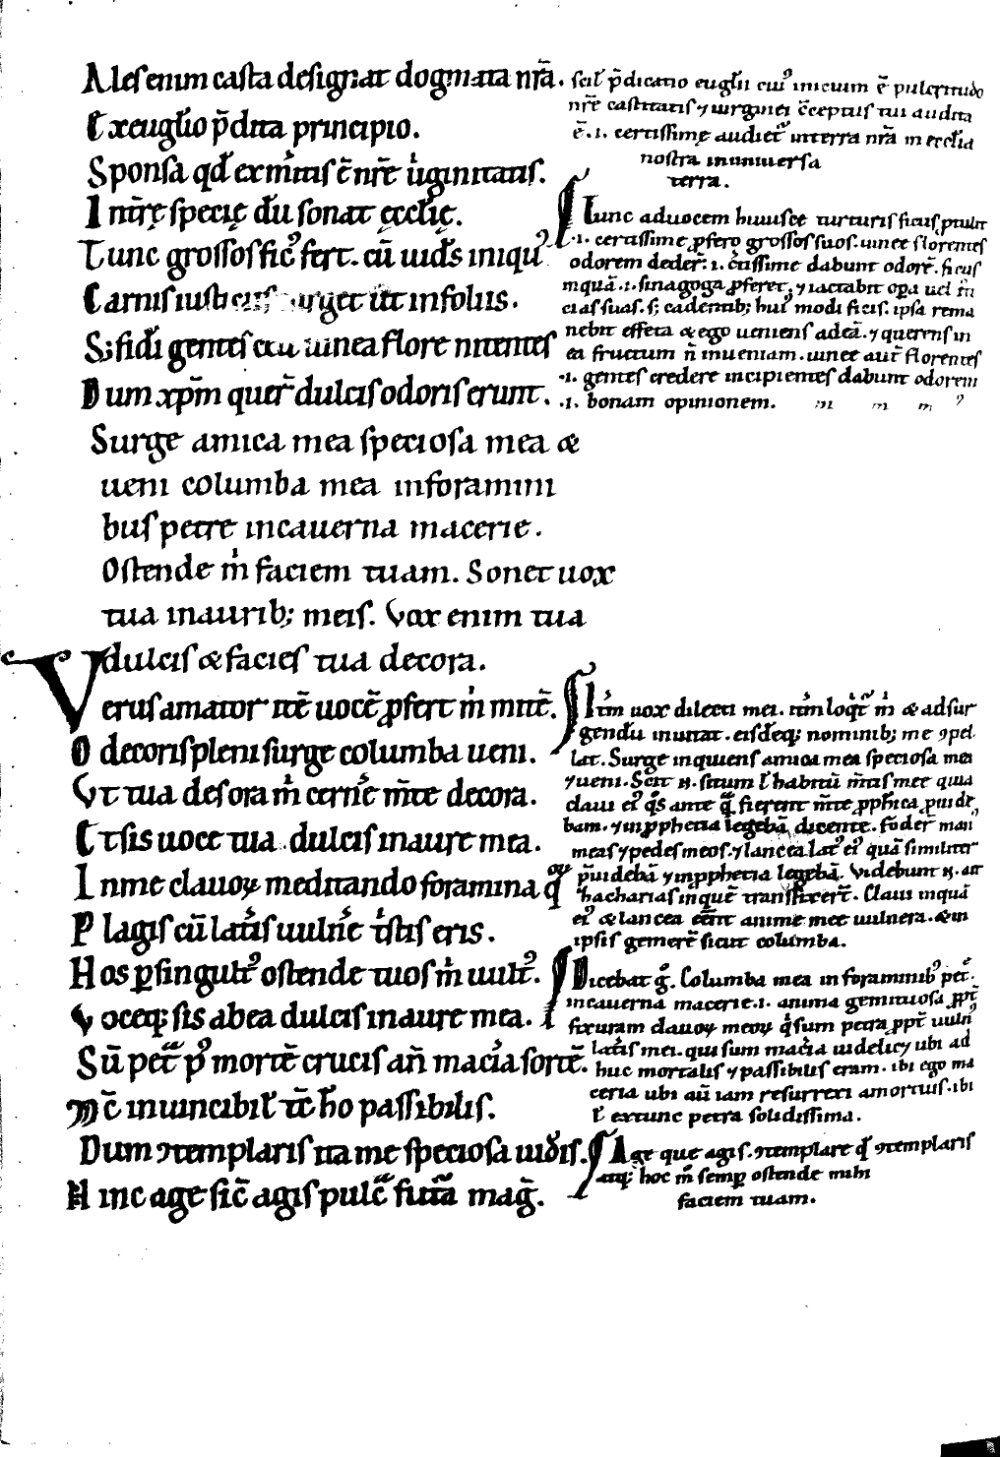 Ales enim casta designat dogmata nr̄a.
Et xeuglio p̄dita principio.
Sponsa qđ exmītis c̄ nr̄e uͥginitatis.
In nr̄ę specię dū sonat ęcclię.
Tunc grossos fic᾽ fert. cū uid̄s iniqu᾽
Carnis iusti surget ut infoliis.
S; fidi gentes ceu uinea flore nitentes
Dum xp̄m quer̄ dulcis odoris erunt.
Surge amica mea speciosa mea &
ueni columba mea inforamini
bus petre incauerna macerie.
Ostende mͥ faciem tuam. Sonet uox
tua inaurib; meis. Vox enim tua
dulcis & facies tua decora.
Verus amator itē uocē ꝓfert mͥ mitē.
O decoris pleni surge columba ueni.
Vt tua des ora mͥ cerne m̄te decora.
Et sis uoce tua dulcis inaure mea.
Inme clauoꝝ meditando foramina quoꝝ
Plagis cū latͥs uulnͥe tͥstis eris.
Hos ꝑsingult᾽ ostende tuos mͥ uult᾽.
Voceq; sis abea dulcis inaure mea.
Sū pet̄ p᾽ mortē crucis an̄ macͥa fortē.
Nc̄ inuincibil tc̄ ho passibilis.
Dum ꝯtemplaris ita me speciosa uidͥs.
Hinc age sic̄ agis pulc̄ futa maḡ.
scil p̄dicatio euglii cui᾽ inicium ē pulcritudo
nr̄e castitatis ⁊ uirginei c̄ceptus tui audita
ē .i. certissimę audiet᾽ interra nr̄a in ecclia
nostra inuniuersa
terra.
Tunc aduocem huiusce turturis ficus ptulit
.i. certissime ꝓferet grossos suos. uinee florentes
odorem deder̄ .i. c̄tissime dabunt odorē. ficus
inquā .i. sinagoga ꝓferet ⁊ iactabit opa uel
cias suas. s; cadentib; hui᾽ modi ficis. ipsa rema
nebit effeta & ego ueniens adeā. ⁊ querens in
ea fructum n̄ inueniam. uinee aut̄ florentes
.i. gentes credere incipientes dabunt odorem
.i. bonam opinionem.
Itͥm uox dilecti mei. itͥm loqͥt᾽ mͥ & adsur
gendū inuitat. eisdēq; nominib; me ꝯpel
lat. Surge inquiens amica mea speciosa mea
⁊ ueni. Scit n. situm l habitū mīus mee quia
claui ei᾽ qͥs ante qͣ fierent m̄te ꝓphica puide
bam. ⁊ inꝓphetia legebā dicente. foder̄ man᾽
meas ⁊ pedes meos. ⁊ lancea lat᾽ ei᾽ quā similiter
p̄uidebā ⁊ inꝓphetia legebā. Videbunt n. ait
hacharias inquē transfixer̄t. Claui inquā
ei᾽ & lancea anime mee uulnera. & in
ipsis gemerē sicut columba.
Dicebat g̊. Columba mea in foraminib᾽ pet̄.
incauerna macerie .i. anima gemituosa ꝓpt̄
fixuram clauoꝝ meoꝝ qͥ sum petra ꝓpt̄ uuln᾽
latͥs mei. qui sum macͥa uidelicꝫ ubi ad
huc mortalis ⁊ passibilis eram. ibi ego ma
ceria ubi aū iam resurrexi amortuis. ibi
l extunc petra solidissima.
Age que agis. ꝯtemplare qđ ꝯtemplaris
atq; hoc m̄ semꝑ ostende mihi
faciem tuam.